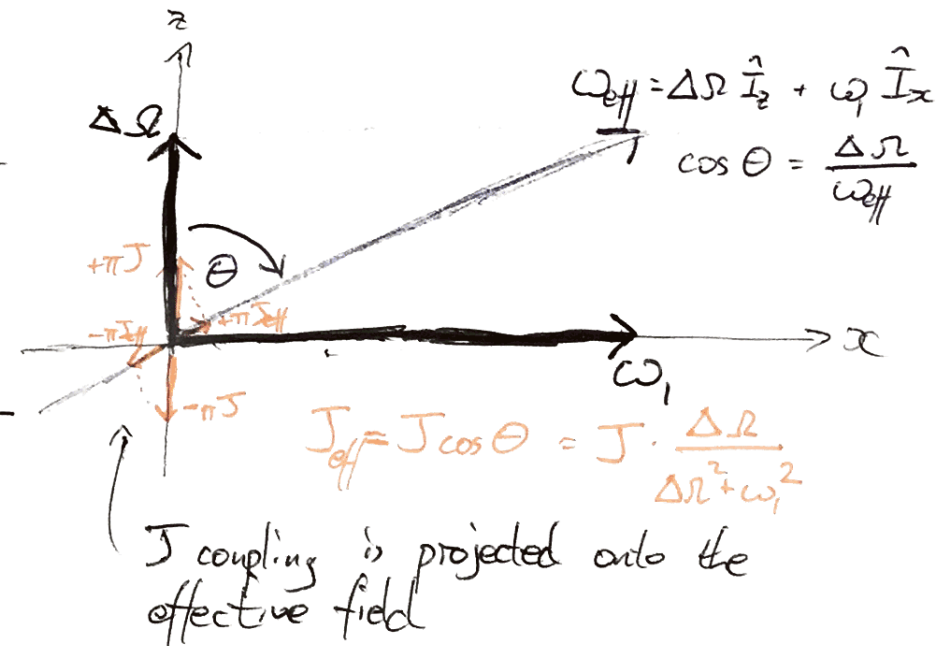 z
ω_eff = ΔΩ Î_z + ω₁ Î_x
ΔΩ
cos θ = ΔΩ / ω_eff
+πJ
θ
-πJ_eff
+πJ_eff
x
ω₁
-πJ
J_eff = J cos θ = J · ΔΩ / ΔΩ² + ω₁²
J coupling is projected onto the
effective field